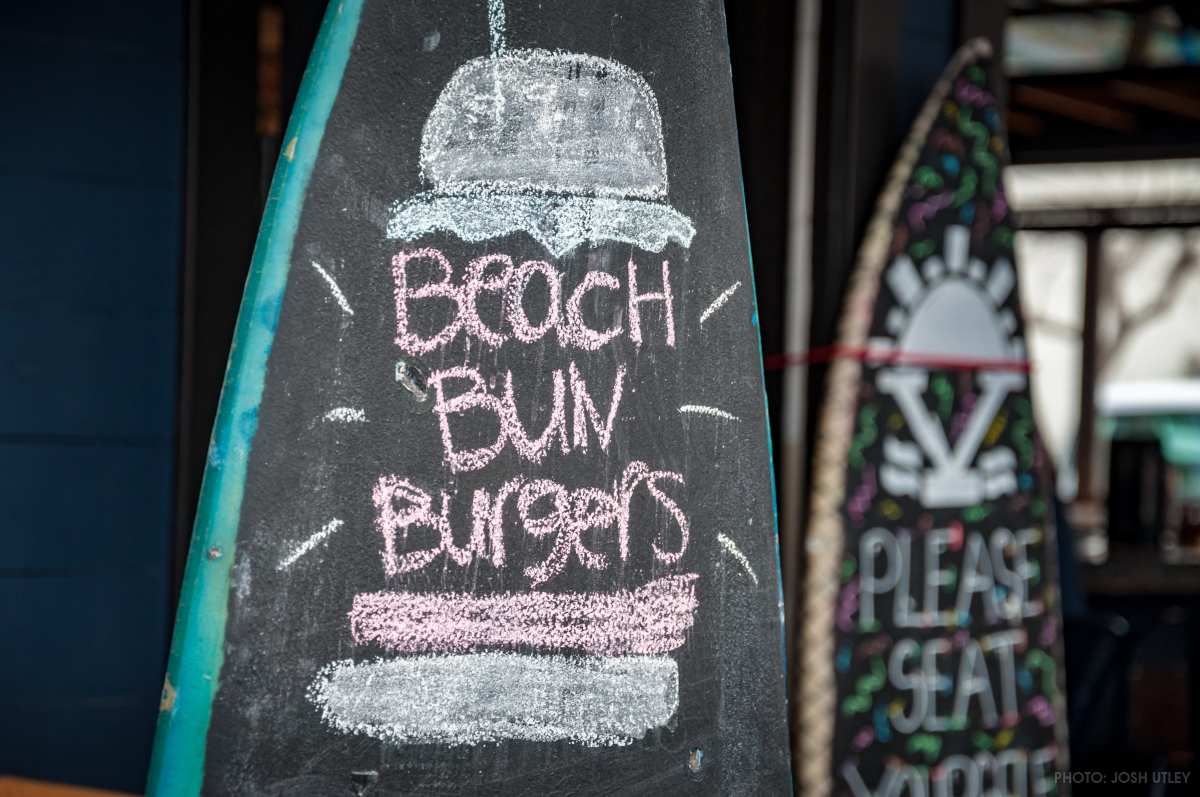 BeacH
BUN
Burgers
V
PLEASE
SEAT
YOURSELF
PHOTO: JOSH UTLEY